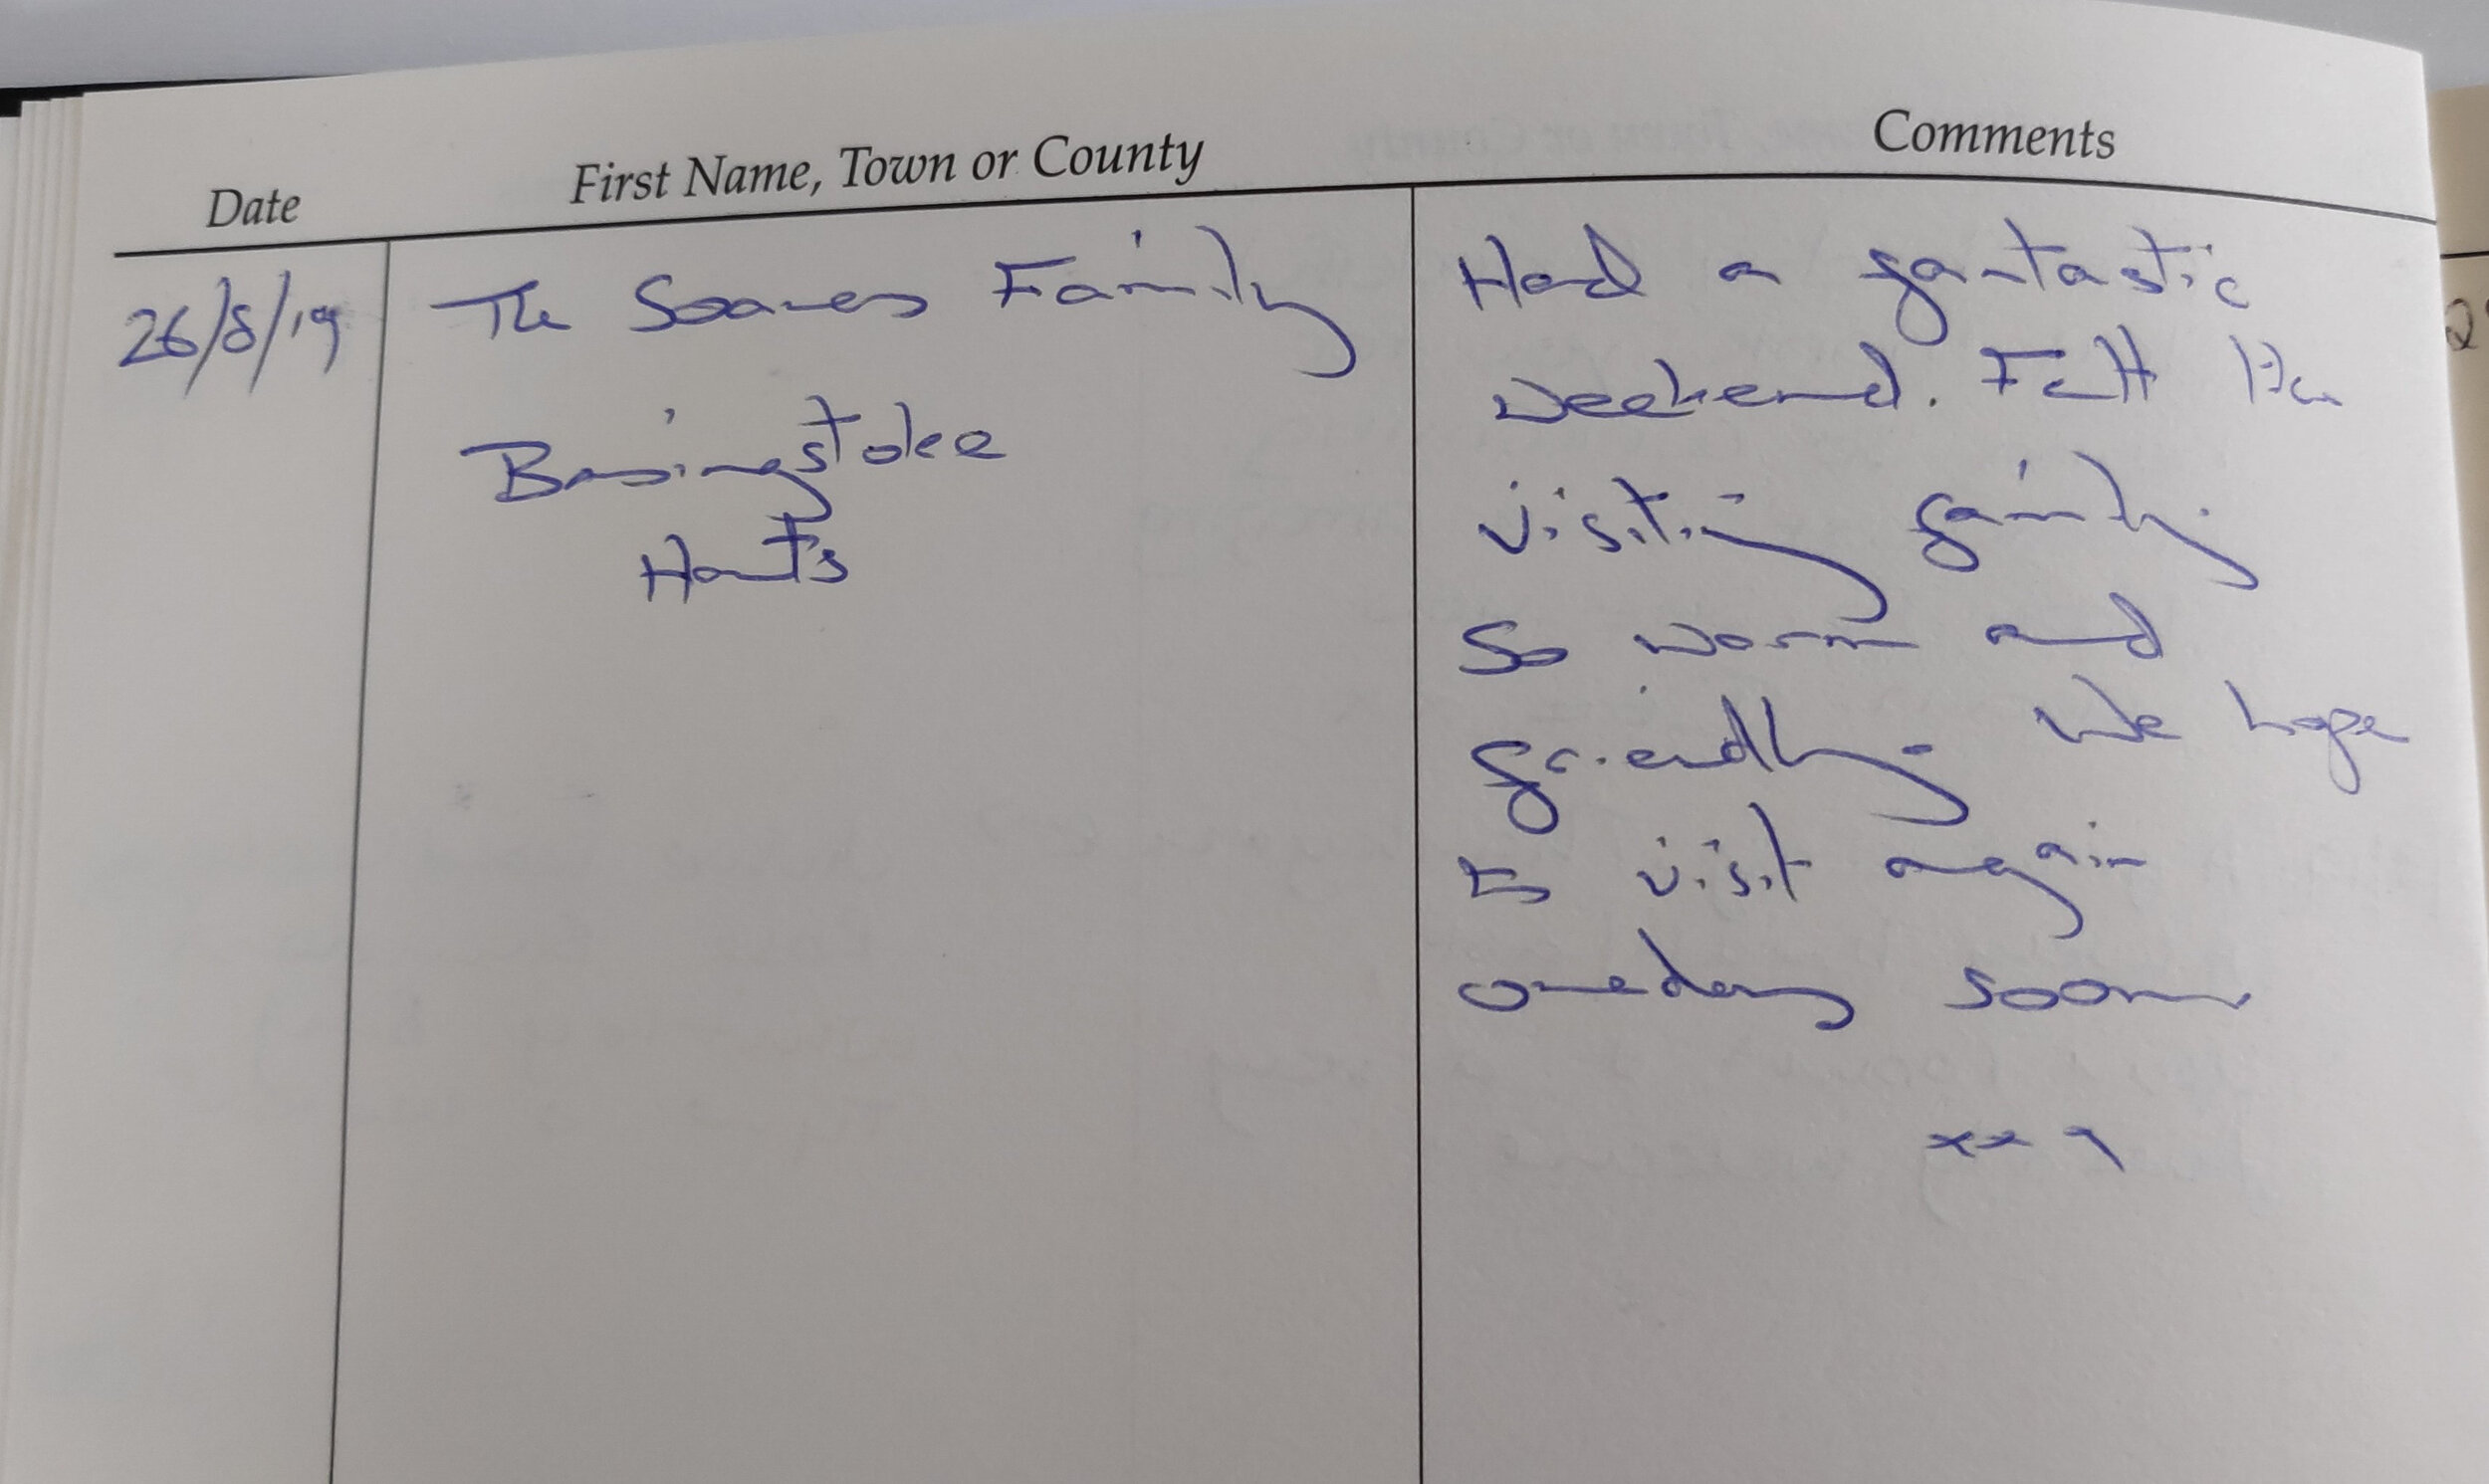 Date First Name, Town or County Comments
26/8/19 The Soares Family
Basingstoke
Hants
Had a fantastic
weekend. Felt like
visiting family.
So warm and
friendly. We hope
to visit again
oneday soon
xxx